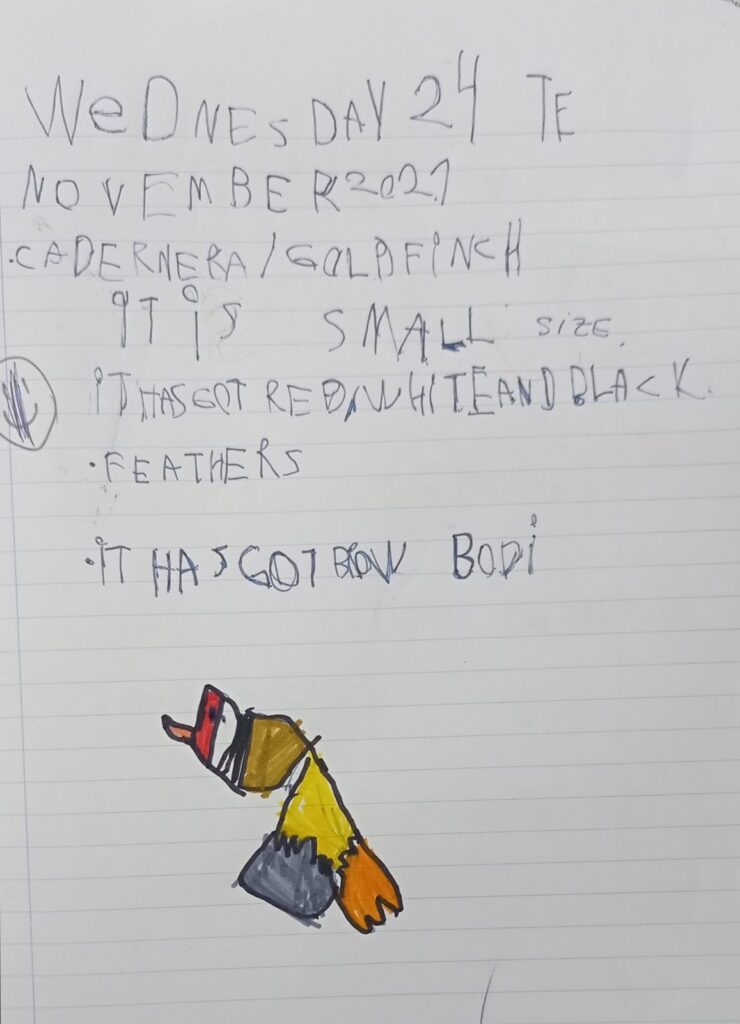 WeDNESDAY 24 TE
NOVEMBER 2021
.CADERNERA/GOLDFINCH
iT iS SMALL SIZE.
iT HAS GOT RED, WHITE AND BLACK.
.FEATHERS
.iT HAS GOT BROW BODi